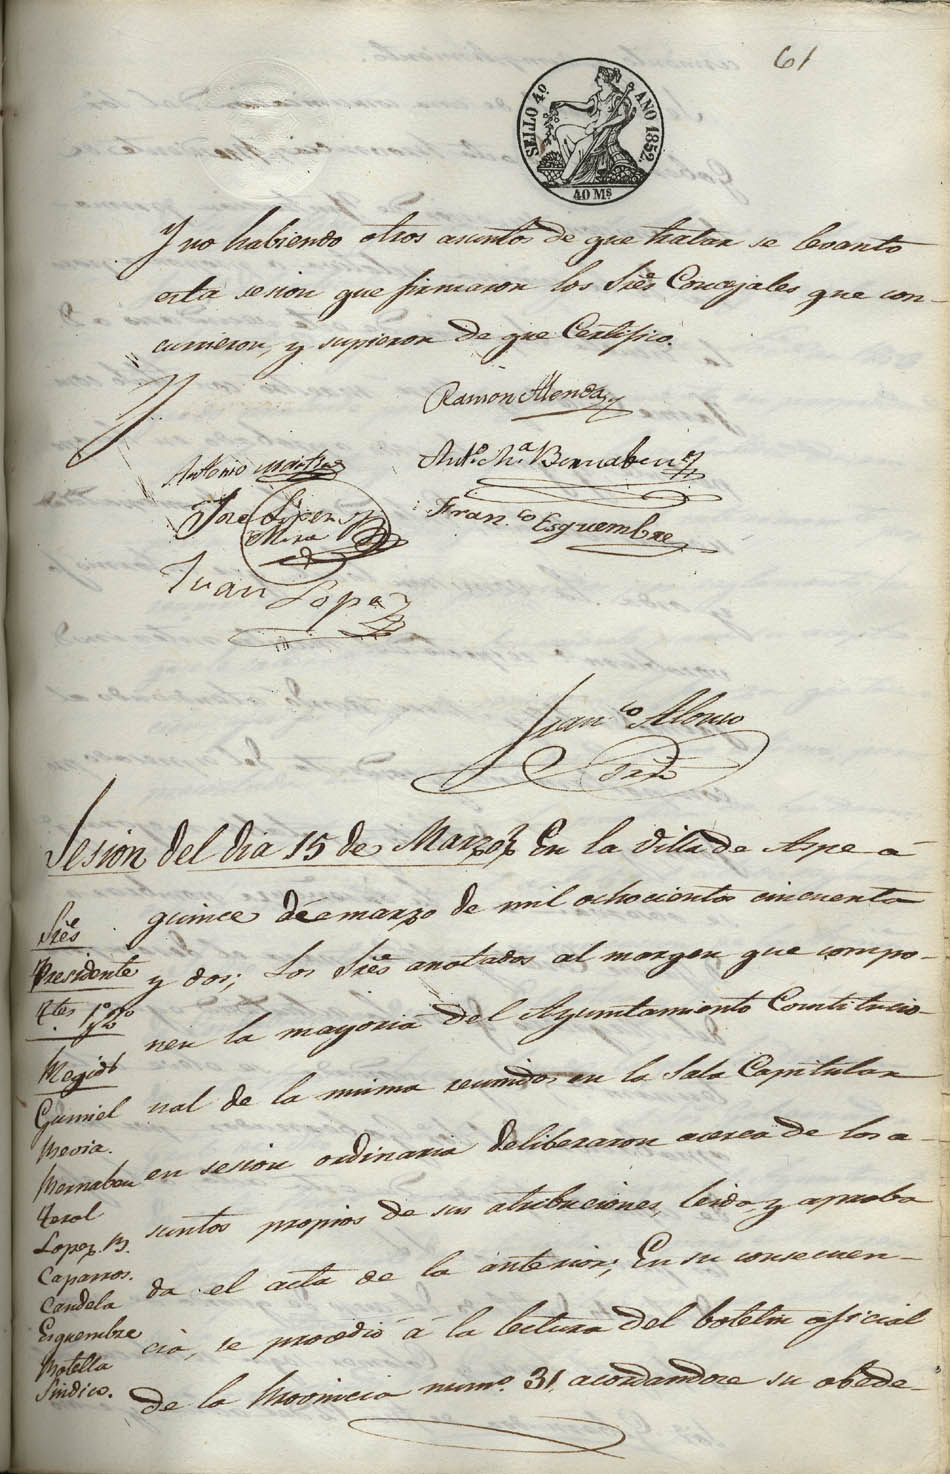 61
SELLO 4º AÑO 1852.
40 Mˢ
Y no habiendo otros asuntos de que tratar se levanto
esta sesion que firmaron los Sres Concejales que con-
currieron, y supieron de que Certifico.
Ramon Almodaz
Antonio Martinez
Antº Mª Bernabeu
Jose Lopez
Mira
Franco Esquembre
Juan Lopez
Franco Alonso
Sesion del dia 15 de Marzo En la villa de Aspe á
quince de marzo de mil ochocientos cincuenta
y dos; Los Sres anotados al margen que compo-
nen la mayoria del Ayuntamiento Constitucio-
nal de la misma reunidos en la Sala Capitular
en sesion ordinaria deliberaron acerca de los a-
suntos propios de sus atribuciones, leido, y aproba
da el acta de la anterior; En su consecuen-
cia, se procedió á la lectura del boletin oficial
de la Provincia numº 31, acordandose su obede-
Sres
Presidente
Ttes 1º y 2º
Regids
Gumiel
Mernabeu
Terol
Lopez M.
Caparros.
Candela
Esquembre
Botella
Sindico.